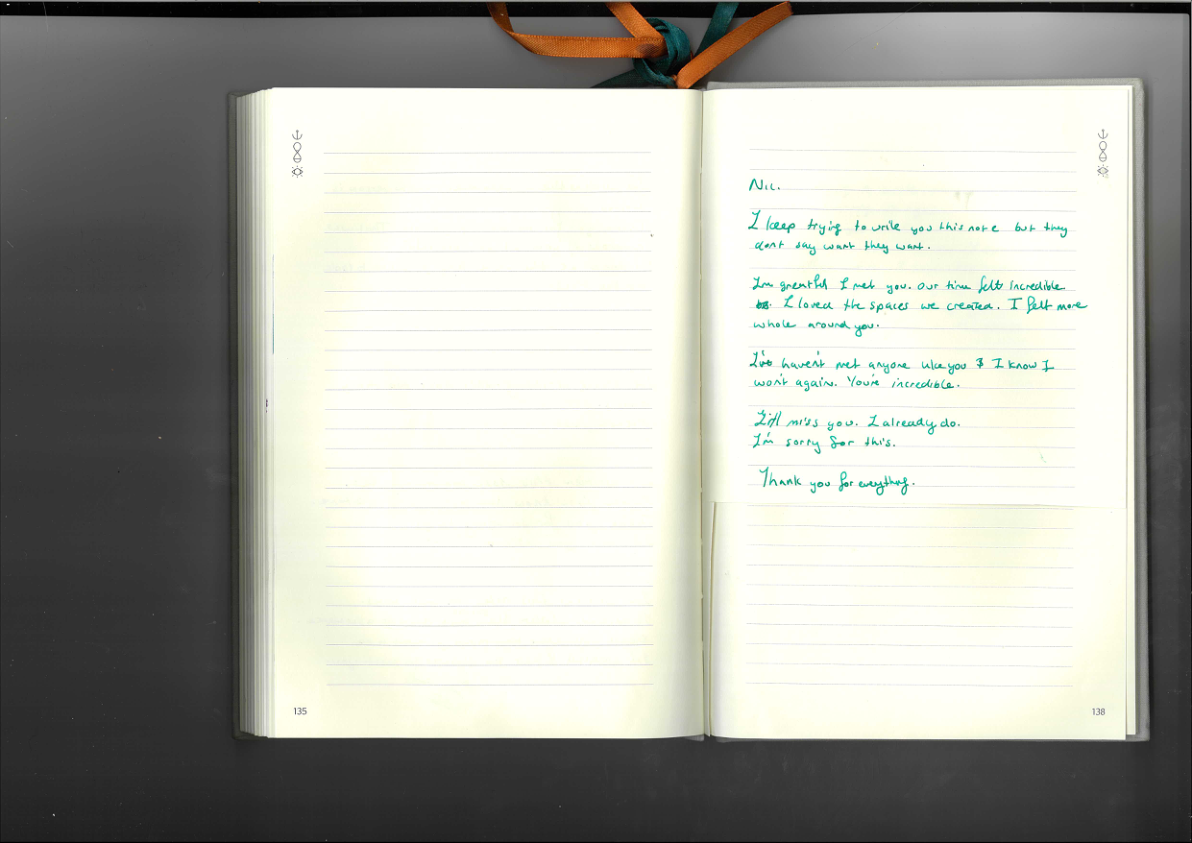 Nic.
I keep trying to write you this note but they
dont say want they want.
I'm greatful I met you. our time felt incredible
. I loved the spaces we created. I felt more
whole around you.
I've haven't met anyone like you & I know I
won't again. You're incredible.
I'll miss you. I already do.
I'm sorry for this.
Thank you for everything.
135
138